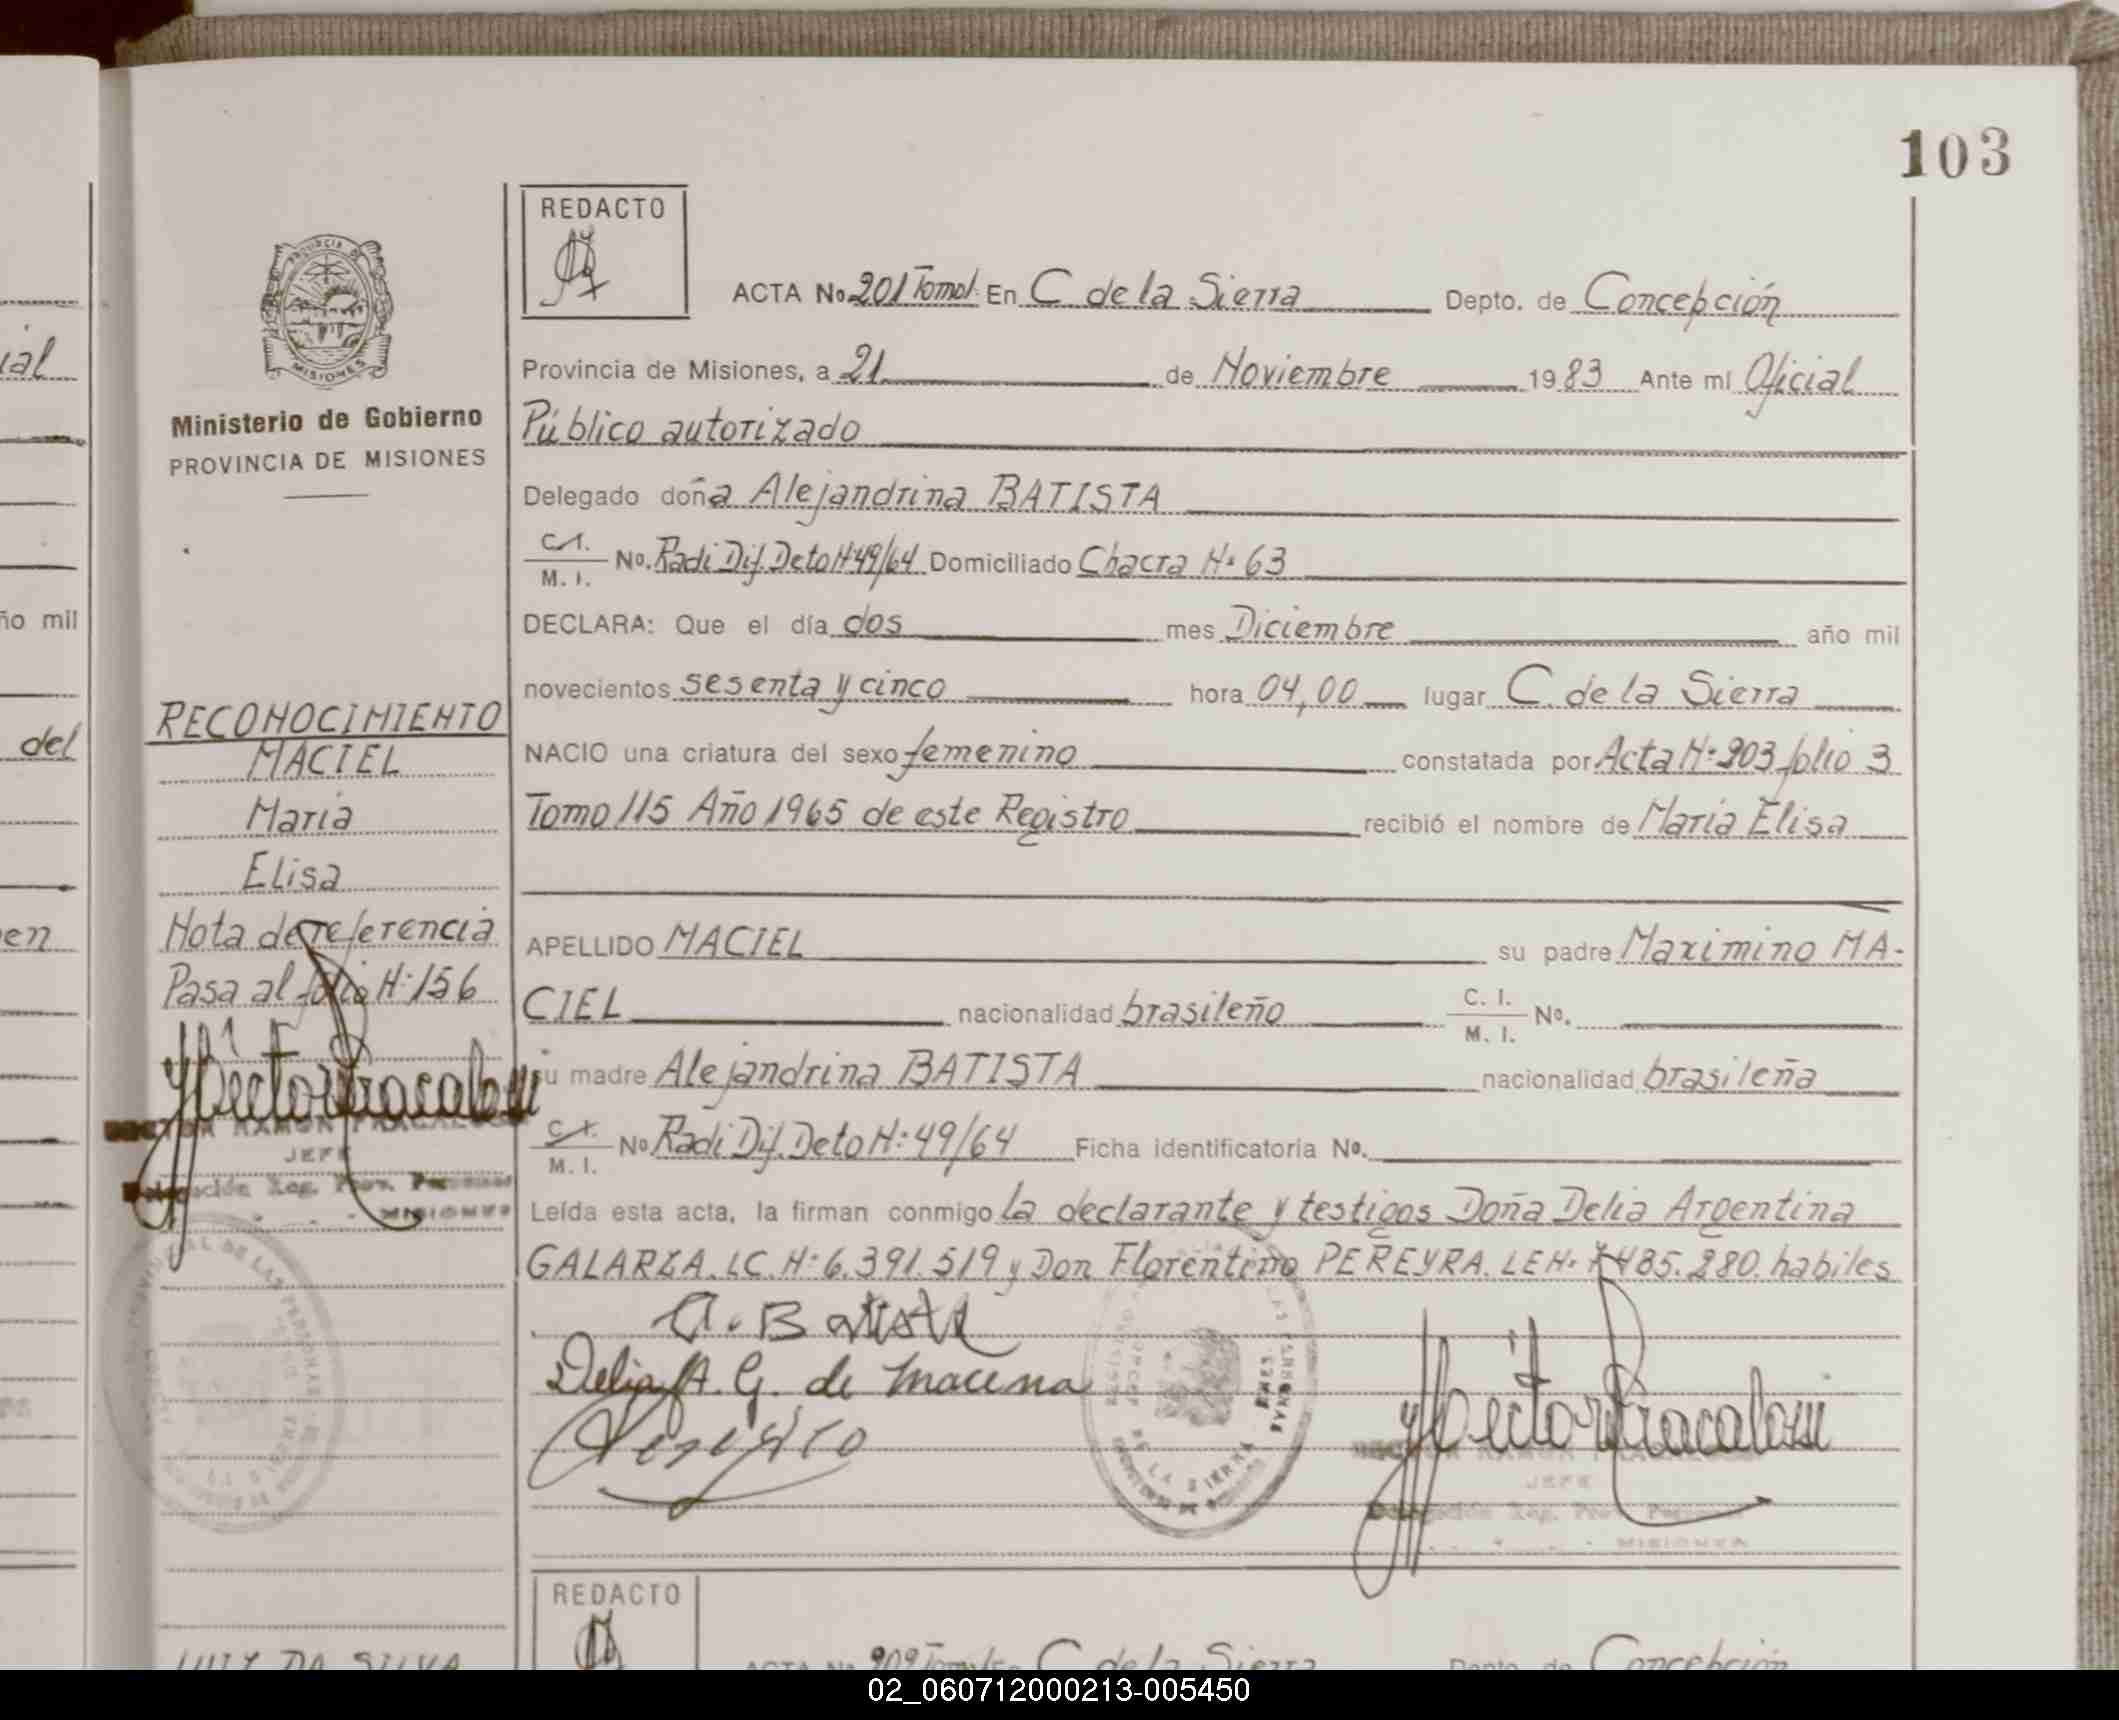 103
REDACTO
ACTA No 201 Tomo I En C. de la Sierra Depto. de Concepción
Provincia de Misiones, a 21 de Noviembre 1983 Ante mí Oficial
Público autorizado
Delegado doña Alejandrina BATISTA
C.I. M.I. No. Radi Dif. Deto Nº 49/64 Domiciliado Chacra Nº 63
DECLARA: Que el día dos mes Diciembre año mil
novecientos sesenta y cinco hora 04,00 lugar C. de la Sierra
NACIO una criatura del sexo femenino constatada por Acta Nº 203 folio 3
Tomo 115 Año 1965 de este Registro recibió el nombre de María Elisa
APELLIDO MACIEL su padre Maximino MA-
CIEL nacionalidad brasileño C. I. M. I. No.
su madre Alejandrina BATISTA nacionalidad brasileña
C.I. M. I. No Radi Dif. Deto Nº 49/64 Ficha identificatoria No.
Leída esta acta, la firman conmigo la declarante y testigos Doña Delia Argentina
GALARZA. LC. Nº 6.391.519 y Don Florentino PEREYRA. LE Nº 7.485.280. habiles
A. Batista
Delia A. G. de Macena
Hector R Fracalossi
HECTOR RAMON FRACALOSSI
JEFE
Delegación Reg. Prov. Personas
MISIONES
DE LA SIERRA
PROVINCIA DE MISIONES
Ministerio de Gobierno
PROVINCIA DE MISIONES
RECONOCIMIENTO
MACIEL
María
Elisa
Nota de referencia
Pasa al folio Nº 156
Hector R Fracalossi
HECTOR RAMON FRACALOSSI
JEFE
Delegación Reg. Prov. Personas
MISIONES
DE LAS PERSONAS
ial
ño mil
del
en
REDACTO
ACTA No 202 Tomo I En C. de la Sierra Depto. de Concepción
LUIZ DA SILVA
02_060712000213-005450